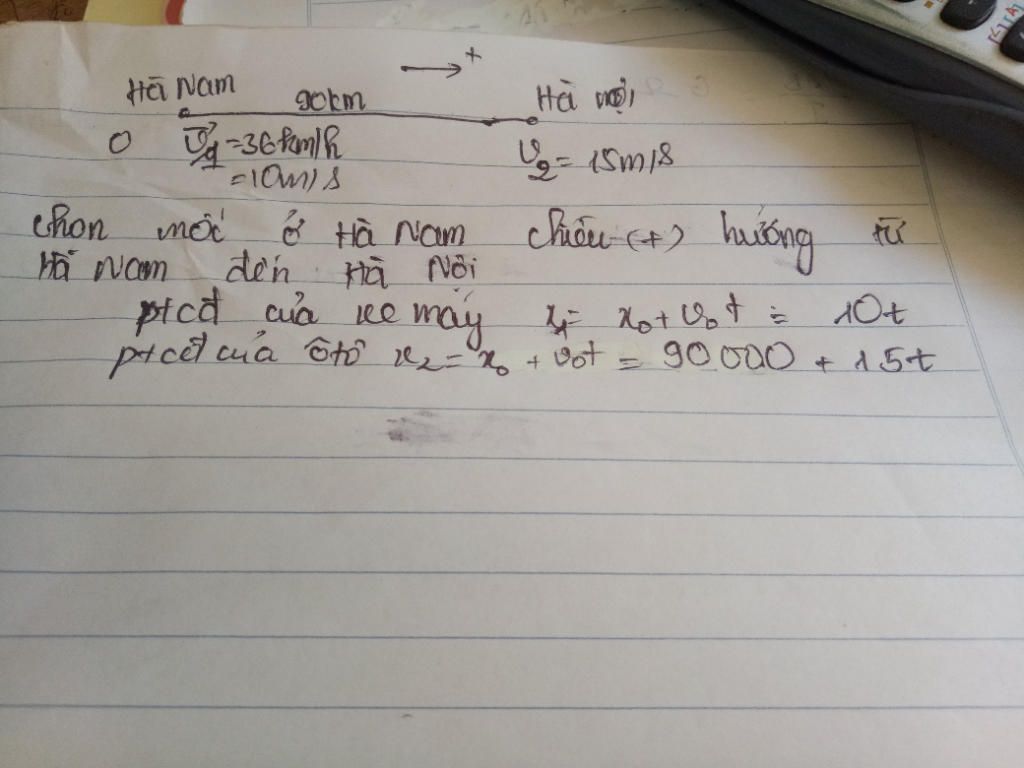 +
Hà Nam 90km Hà nội
O v₁ = 36km/h v₂ = 15m/s
= 10m/s
chọn mốc ở Hà Nam chiều (+) hướng từ
Hà Nam đến Hà Nội
ptcđ của xe máy x₁ = x₀ + v₀t = 10t
ptcđ của ôtô x₂ = x₀ + v₀t = 90000 + 15t